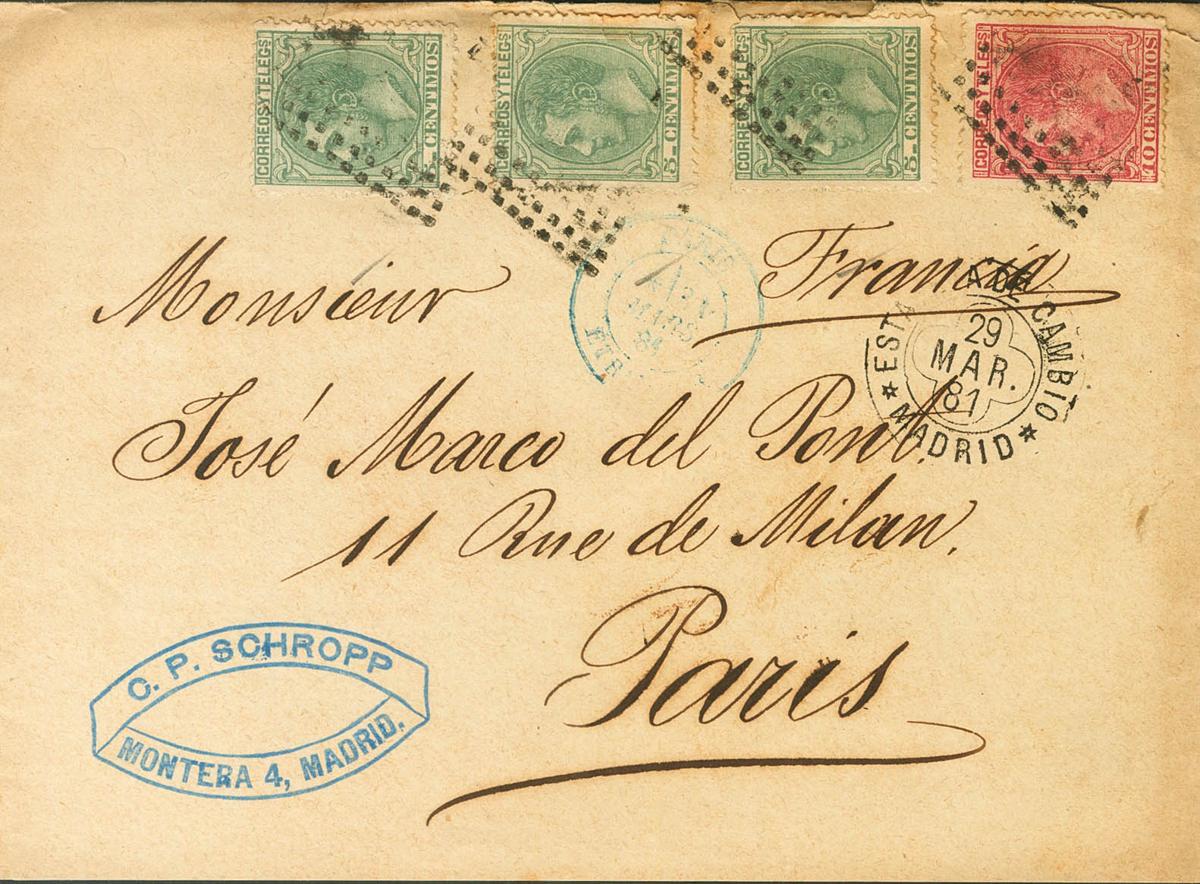 CORREOS Y TELEGS
5 CENTIMOS
CORREOS Y TELEGS
5 CENTIMOS
CORREOS Y TELEGS
5 CENTIMOS
CORREOS Y TELEGS
10 CENTIMOS
Francia
Monsieur
ESTA A DE CAMBIO
29
MAR.
81
MADRID
José Marco del Pont.
11 Rue de Milan.
Paris
C. P. SCHROPP
MONTERA 4, MADRID.